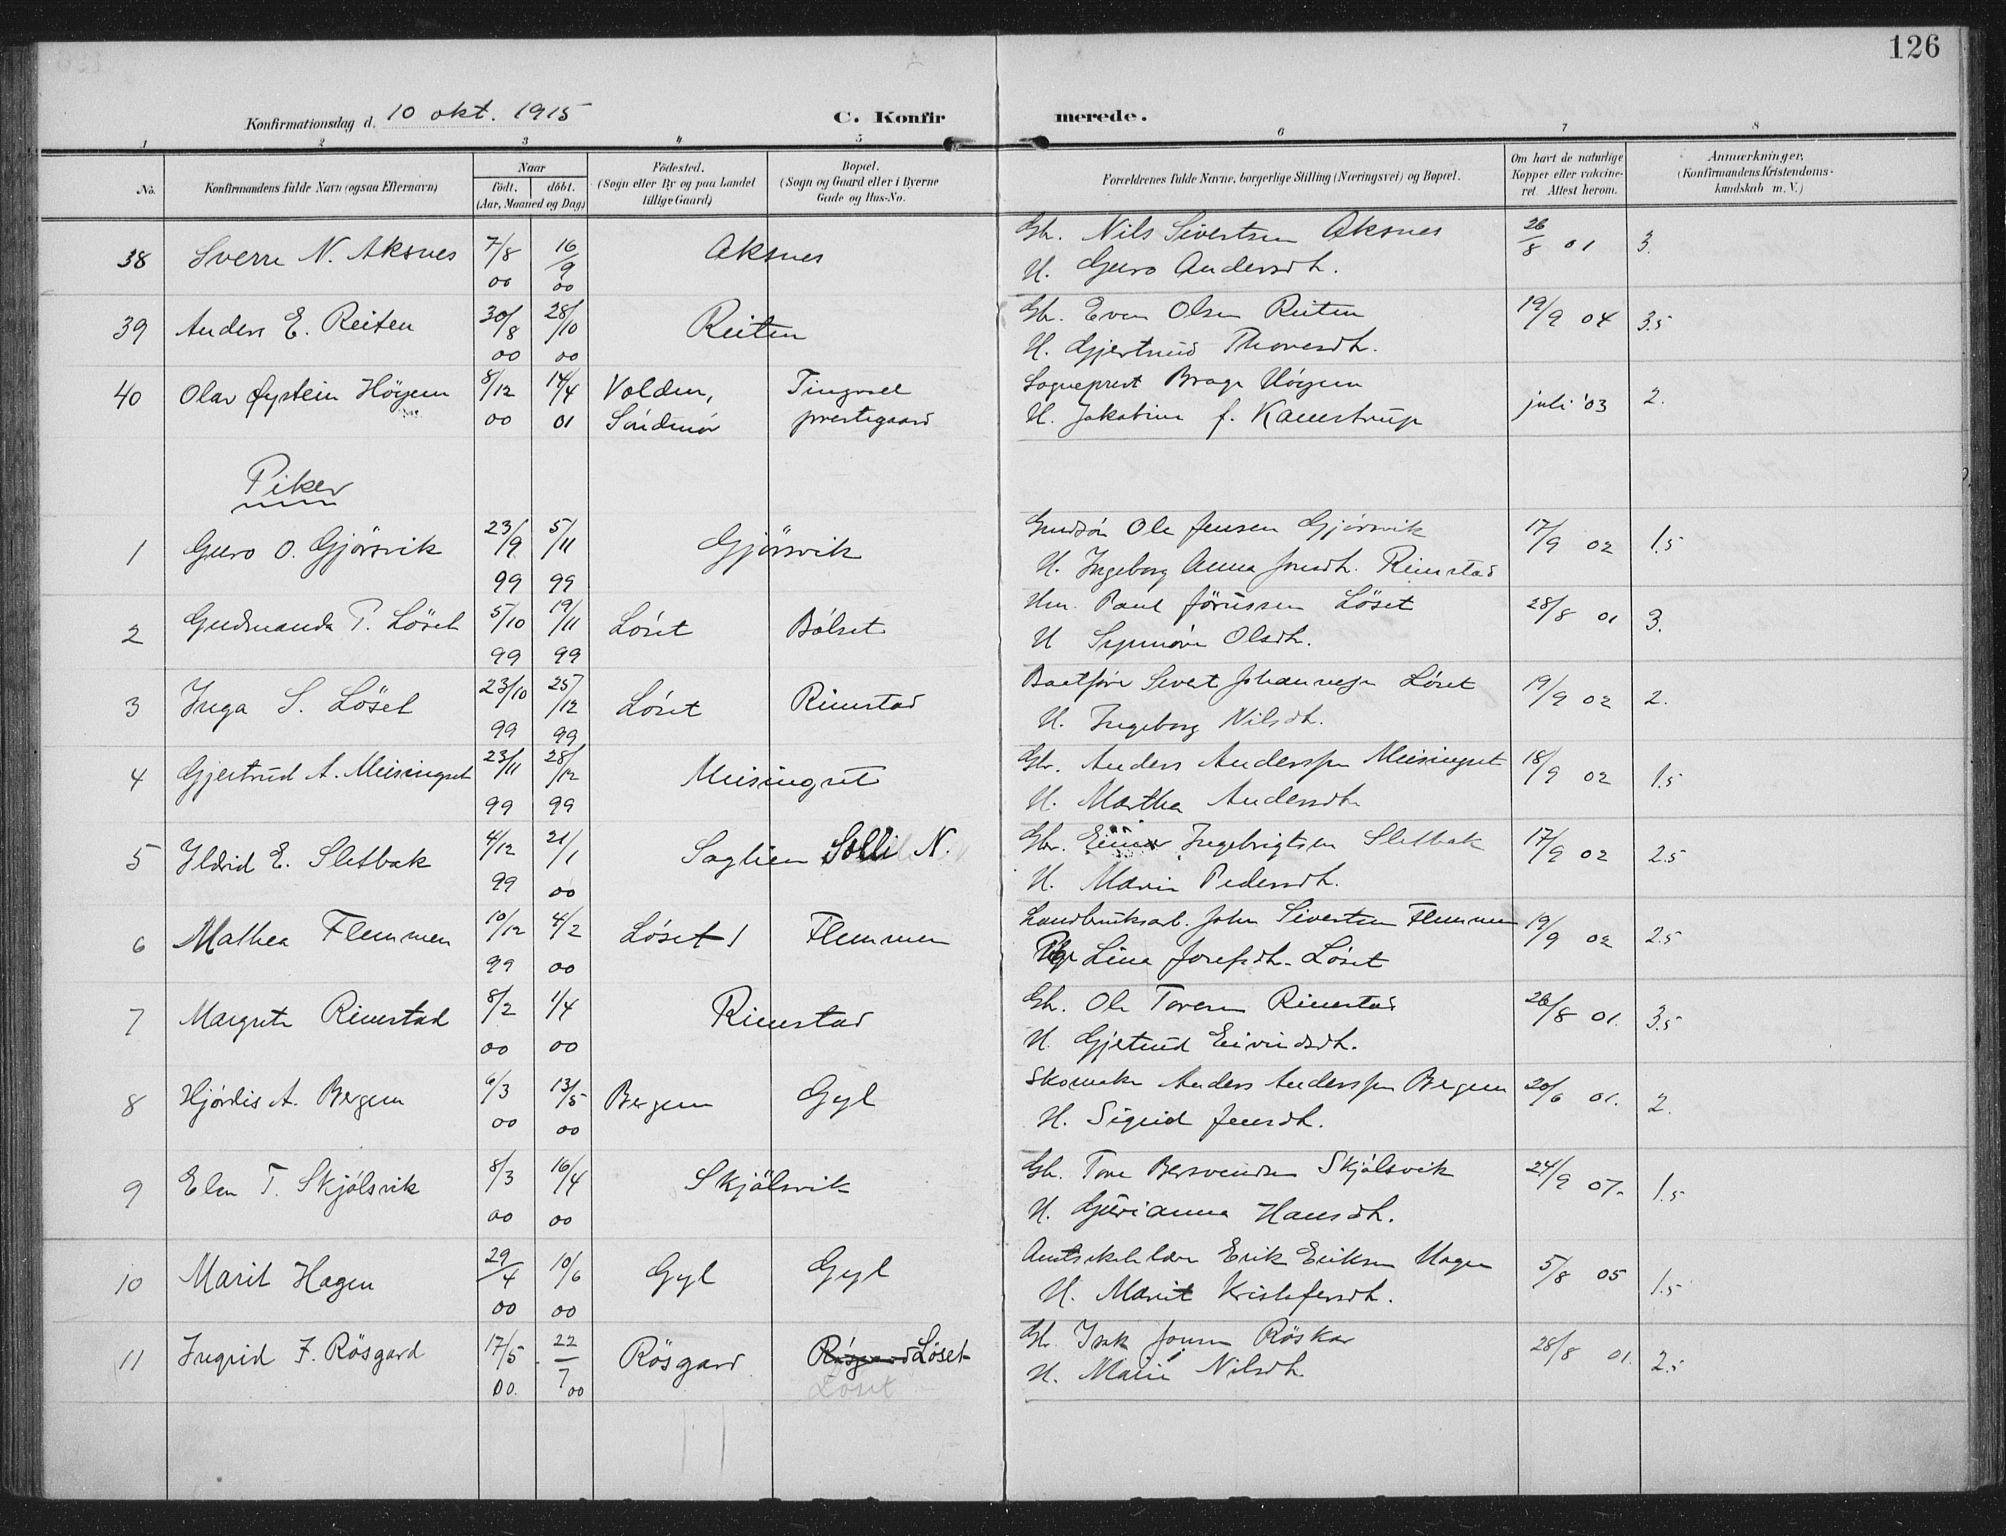 126
Konfirmationsdag d. 10 okt. 1915
C. Konfirmerede.
1 2 3 4 5 6 7 8
No.
Konfirmandens fulde Navn (ogsaa Efternavn)
Naar
födt. döbt.
(Aar, Maaned og Dag)
Födested.
(Sogn eller By og paa Landet
tillige Gaard)
Bopæl.
(Sogn og Gaard eller i Byerne
Gade og Hus-No.
Forældrenes fulde Navne, borgerlige Stilling (Næringsvei) og Bopæl.
Om havt de naturlige
Kopper eller vakcine-
ret. Attest herom.
Anmærkninger,
(Konfirmandens Kristendoms-
kundskab m. V.)
38 Sverre N. Aksnes 7/8 00 16/9 00 Aksnes Gbr. Nils Sivertsen Aksnes 26/8 01 3.
H. Guro Andersdh.
39 Anders E. Reiten 30/8 00 28/10 00 Reiten Gbr. Even Olsen Reiten 19/9 04 3.5
H. Gjertrud Thoresdh.
40 Olav Øystein Höyem 8/12 00 14/4 01 Volden, Tingvoel Sogneprest Brage Höyem juli '03 2.
Söndmör prestegaard H. Jakobine f. Kamstrup
Piker
1 Guro O. Gjörsvik 23/9 99 5/11 99 Gjörsvik Grudsön Ole Jensen Gjörsvik 17/9 02 1.5
H. Ingeborg Anna Jonsdh. Rimstad
2 Gudmanda P. Löset 5/10 99 19/11 99 Löset Bölset Hm. Paul Löset 28/8 01 3.
H Synnöve Olsdh.
3 Inga S. Löset 23/10 99 25/12 99 Löset Rimstad Baatförer Sivert Johannesen Löset 19/9 02 2.
H. Ingeborg Nilsdh.
4 Gjertrud A. Meisingset 23/11 99 28/12 99 Meisingset Gbr. Anders Anderssen Meisingset 18/9 02 1.5
H. Martha Andersdh
5 Ildrid E. Sletbak 4/12 99 21/1 00 Saglien Solli N. Gbr. Einar Ingebrigtsen Sletbak 17/9 02 2.5
H. Marie Pedersdh.
6 Mathea Flemmen 10/12 99 4/2 00 Löset Flemmen Landbruksarb. John Sivertsen Flemmen 19/9 02 2.5
Pige Line Josefsdh. Löset
7 Margrete Rimstad 8/2 00 1/4 00 Rimstad Gbr. Ole Toresen Rimstad 26/8 01. 3.5
H. Gjetrud Eivindsdh.
8 Hjördis A. Bergem 6/3 00 13/5 00 Bergem Gyl Skomaker Anders Anderssen Bergem 20/6 01. 2.
H. Sigrid Jensdh.
9 Elen T. Skjölsvik 8/3 00 16/4 00 Skjölsvik Gbr. Tore Bersvendsen Skjölsvik 24/9 07. 1.5
H. Gurianna Hansdh.
10 Marit Hagen 29/4 00 10/6 00 Gyl Gyl Amtsskolelærer Erik Eriksen Hagen 5/8 05 1.5
H. Marit Kristofersdh.
11 Ingrid I. Rösgard 17/5 00. 22/7 00 Rösgard Rösgaard Löset Gbr. Isak Jonsen Röskar 28/8 01. 2.5
Löset H. Marie Nilsdh